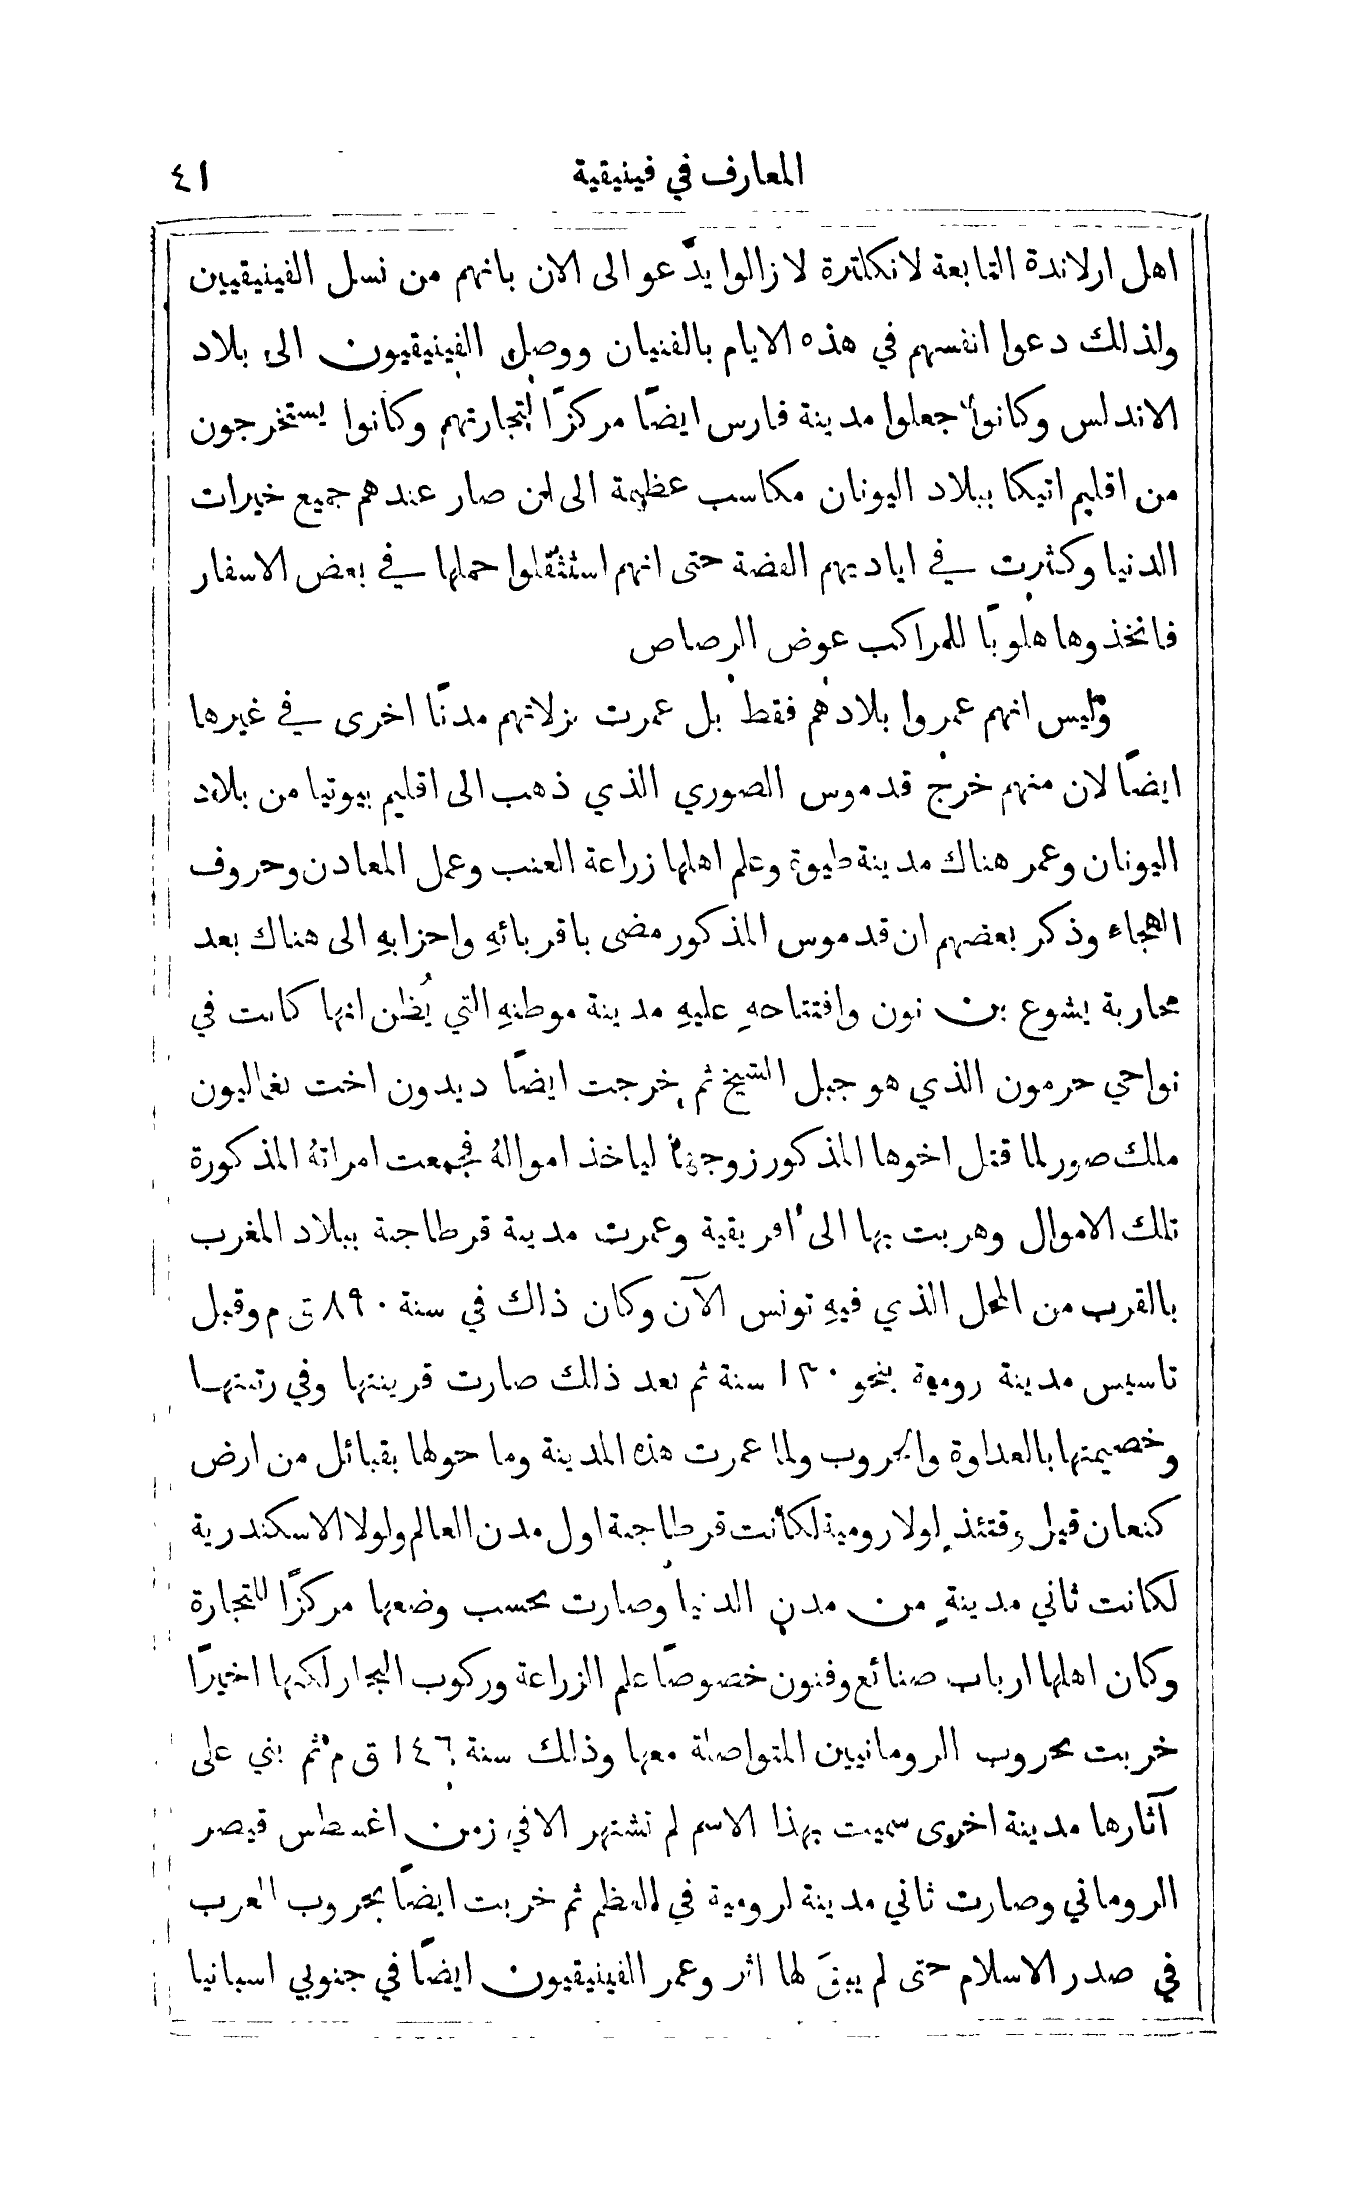 المعارف في فينيقية ٤١
اهل ارلاندة التابعة لانكلترة لا زالوا يدّعو الى الان بانهم من نسل الفينيقيين
ولذلك دعوا انفسهم في هذه الايام بالفنيان ووصل الفينيقيون الى بلاد
الاندلس وكانوا جعلوا مدينة فارس ايضًا مركزًا لتجارتهم وكانوا يستخرجون
من اقليم اتيكا ببلاد اليونان مكاسب عظيمة الى ان صار عندهم جميع خيرات
الدنيا وكثرت في اياديهم الفضة حتى انهم استثقلوا حملها في بعض الاسفار
فاتخذوها هلوبًا للمراكب عوض الرصاص
وليس انهم عمروا بلادهم فقط بل عمرت نزلاتهم مدنًا اخرى في غيرها
ايضًا لان منهم خرج قدموس الصوري الذي ذهب الى اقليم بيوتيا من بلاد
اليونان وعمر هناك مدينة طيوة وعلم اهلها زراعة العنب وعمل المعادن وحروف
الهجاء وذكر بعضهم ان قدموس المذكور مضى باقربائهِ واحزابهِ الى هناك بعد
محاربة يشوع بن نون وافتتاحهِ عليهِ مدينة موطنهِ التي يُظن انها كانت في
نواحي حرمون الذي هو جبل الشيخ ثم خرجت ايضًا ديدون اخت بغماليون
ملك صور لما قتل اخوها المذكور زوجها لياخذ اموالهُ فجمعت امراتهُ المذكورة
تلك الاموال وهربت بها الى افريقية وعمرت مدينة قرطاجنة ببلاد المغرب
بالقرب من المحل الذي فيهِ تونس الآن وكان ذاك في سنة ٨٩٠ ق م وقبل
تاسيس مدينة رومية بنحو ١٣٠ سنة ثم بعد ذلك صارت قرينتها وفي رتبتها
وخصيمتها بالعداوة والحروب ولما عمرت هذه المدينة وما حولها بقبائل من ارض
كنعان قيل وقتئذٍ لولا رومية لكانت قرطاجنة اول مدن العالم ولولا الاسكندرية
لكانت ثاني مدينةٍ من مدن الدنيا وصارت بحسب وضعها مركزًا للتجارة
وكان اهلها ارباب صنائع وفنون خصوصًا علم الزراعة وركوب البحار لكنها اخيرًا
خربت بحروب الرومانيين المتواصلة معها وذلك سنة ١٤٦ ق م ثم بني على
آثارها مدينة اخرى سميت بهذا الاسم لم تشتهر الا في زمن اغسطس قيصر
الروماني وصارت ثاني مدينة لرومية في العظم ثم خربت ايضًا بحروب العرب
في صدر الاسلام حتى لم يبقَ لها اثر وعمر الفينيقيون ايضًا في جنوبي اسبانيا